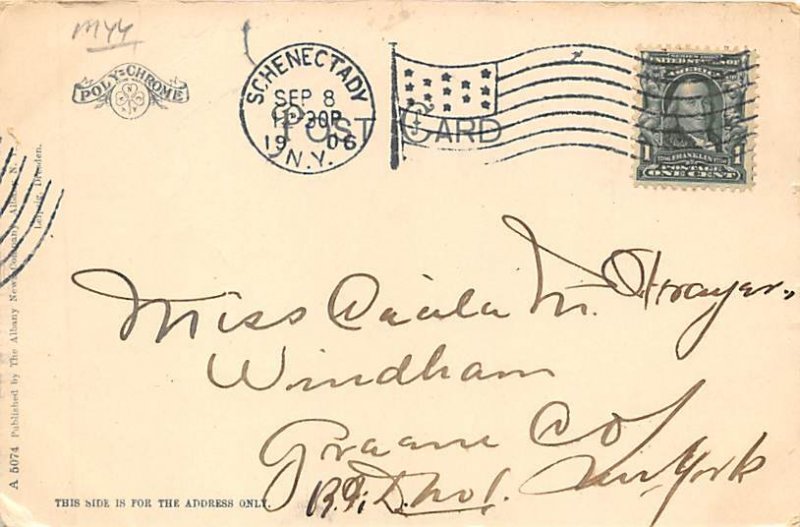 M44
POLY=CHROME
SCHENECTADY
SEP 8
12-30P
1906
N.Y.
POST CARD
SERIES 1902
UNITED STATES OF
AMERICA
FRANKLIN
POSTAGE
1 ONE CENT 1
Miss M. Strayer.
Windham
Greene Co
R.F.D. No 1. New York
THIS SIDE IS FOR THE ADDRESS ONLY.
A 5074 Published by The Albany News Company, Albany N.
Leipzig, Dresden.